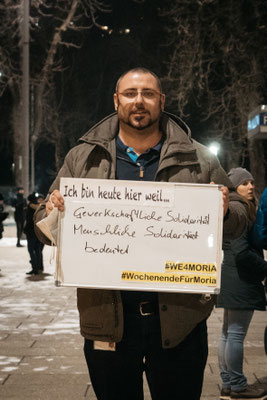 Ich bin heute hier weil...
Gewerkschaftliche Solidarität
Menschliche Solidarität
bedeutet
#WE4MORIA
#WochenendeFürMoria